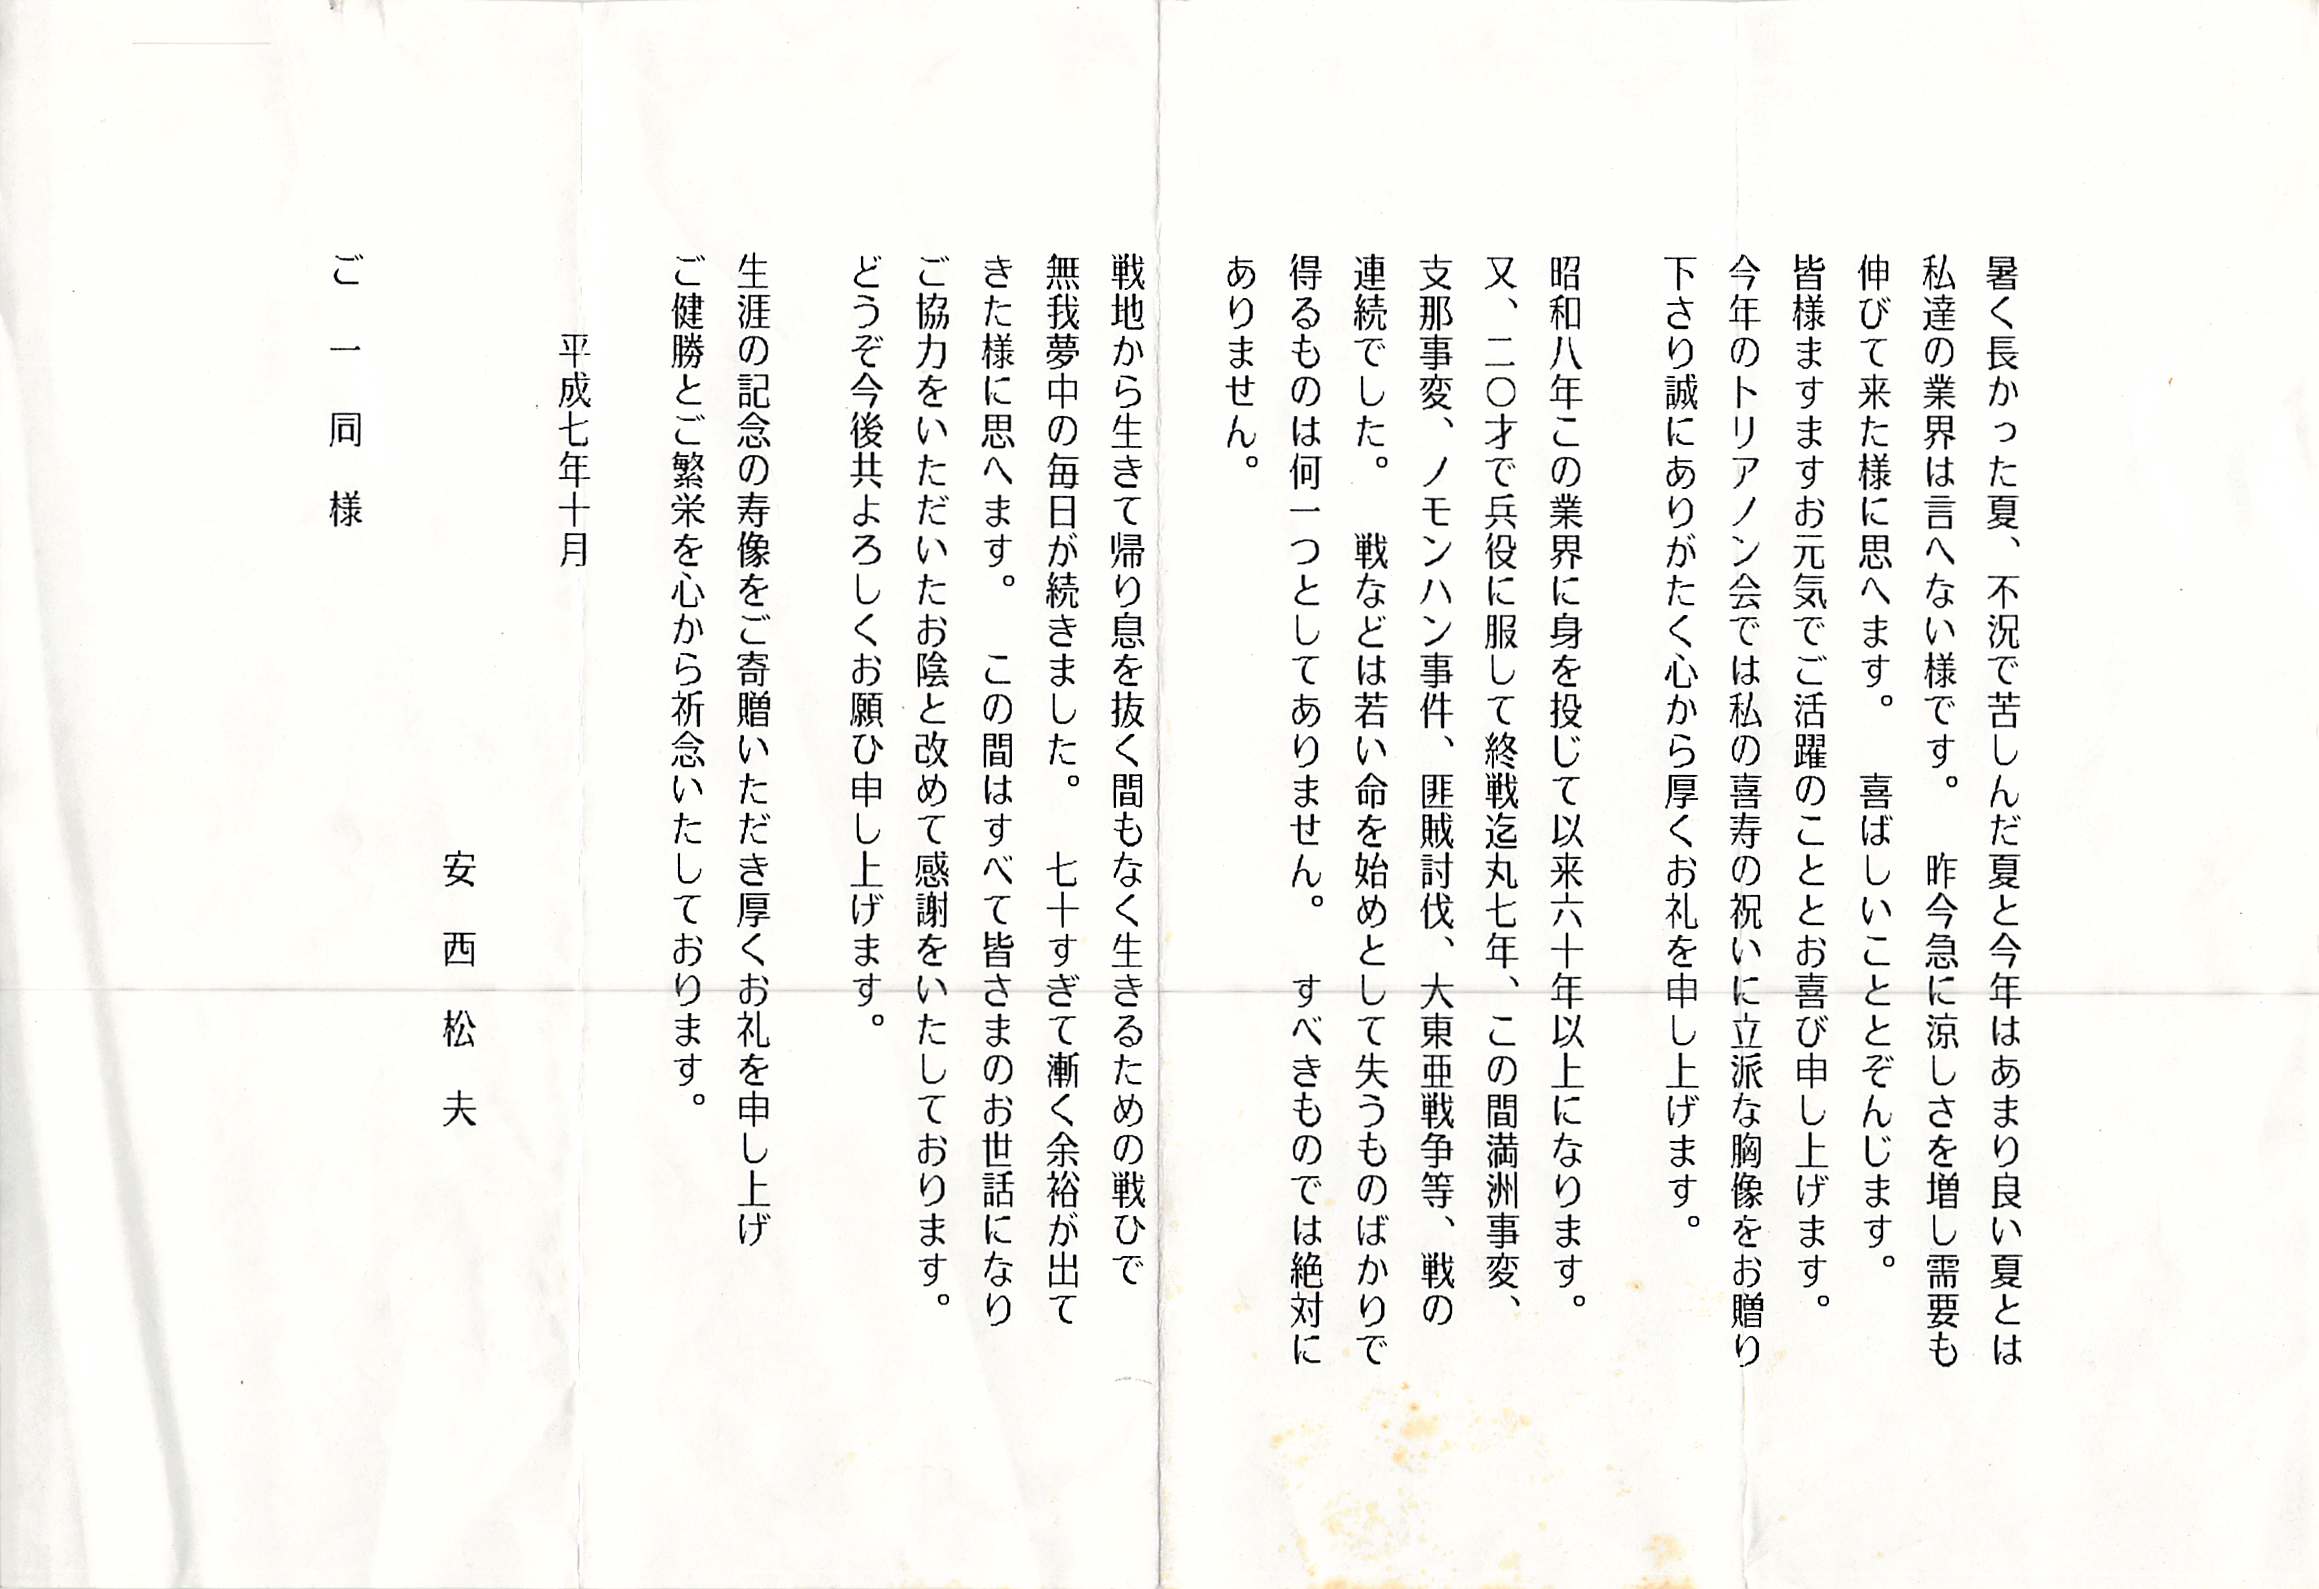 暑く長かった夏、不況で苦しんだ夏と今年はあまり良い夏とは
私達の業界は言へない様です。　昨今急に涼しさを増し需要も
伸びて来た様に思へます。　喜ばしいこととぞんじます。
皆様ますますお元気でご活躍のこととお喜び申し上げます。
今年のトリアノン会では私の喜寿の祝いに立派な胸像をお贈り
下さり誠にありがたく心から厚くお礼を申し上げます。
昭和八年この業界に身を投じて以来六十年以上になります。
又、二〇才で兵役に服して終戦迄丸七年、この間満洲事変、
支那事変、ノモンハン事件、匪賊討伐、大東亜戦争等、戦の
連続でした。　戦などは若い命を始めとして失うものばかりで
得るものは何一つとしてありません。　すべきものでは絶対に
ありません。
戦地から生きて帰り息を抜く間もなく生きるための戦ひで
無我夢中の毎日が続きました。　七十すぎて漸く余裕が出て
きた様に思へます。　この間はすべて皆さまのお世話になり
ご協力をいただいたお陰と改めて感謝をいたしております。
どうぞ今後共よろしくお願ひ申し上げます。
生涯の記念の寿像をご寄贈いただき厚くお礼を申し上げ
ご健勝とご繁栄を心から祈念いたしております。
平成七年十月
安　西　松　夫
ご　一　同　様